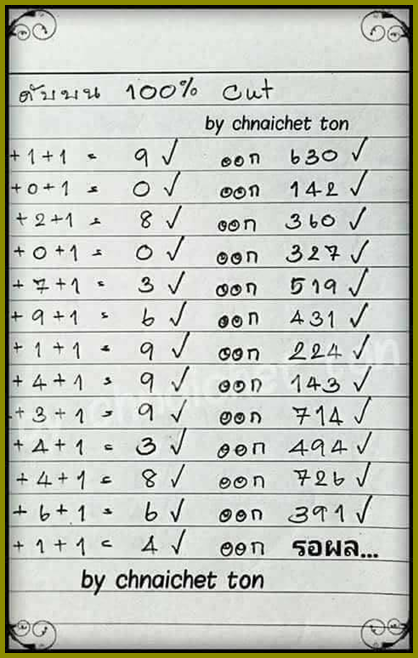 ดับบน 100% Cut
by chnaichet ton
+1+1 = 9 ✓ ออก 630 ✓
+0+1 = 0 ✓ ออก 142 ✓
+2+1 = 8 ✓ ออก 360 ✓
+0+1 = 0 ✓ ออก 327 ✓
+7+1 = 3 ✓ ออก 519 ✓
+9+1 = 6 ✓ ออก 431 ✓
+1+1 = 9 ✓ ออก 224 ✓
+4+1 = 9 ✓ ออก 143 ✓
+3+1 = 9 ✓ ออก 714 ✓
+4+1 = 3 ✓ ออก 494 ✓
+4+1 = 8 ✓ ออก 726 ✓
+6+1 = 6 ✓ ออก 391 ✓
+1+1 = 4 ✓ ออก รอผล...
by chnaichet ton